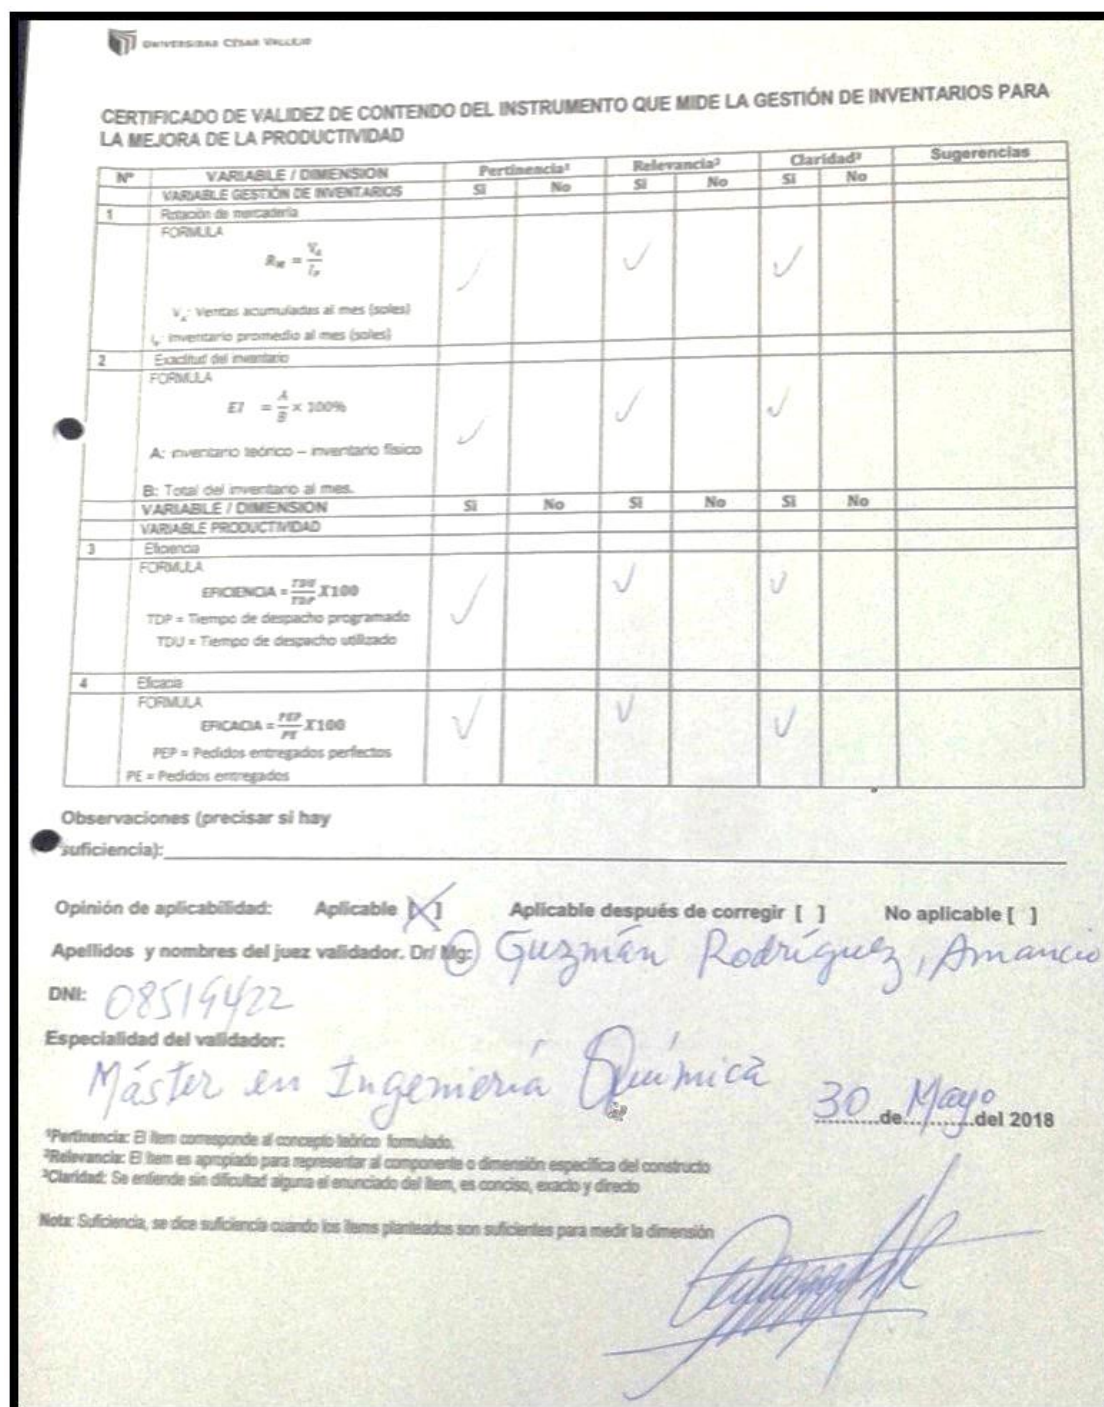 UNIVERSIDAD CÉSAR VALLEJO
CERTIFICADO DE VALIDEZ DE CONTENDO DEL INSTRUMENTO QUE MIDE LA GESTIÓN DE INVENTARIOS PARA
LA MEJORA DE LA PRODUCTIVIDAD
Nº VARIABLE / DIMENSION Pertinencia¹ Relevancia² Claridad³ Sugerencias
VARIABLE GESTIÓN DE INVENTARIOS Si No Si No Si No
1 Rotación de mercadería
FORMULA
R_M = V_A / I_P
V_A: Ventas acumuladas al mes (soles)
I_P: inventario promedio al mes (soles)
2 Exactitud del inventario
FORMULA
EI = A / B × 100%
A: inventario teórico – inventario físico
B: Total del inventario al mes.
VARIABLE / DIMENSION Si No Si No Si No
VARIABLE PRODUCTIVIDAD
3 Eficiencia
FORMULA
EFICIENCIA = TDU / TDP X100
TDP = Tiempo de despacho programado
TDU = Tiempo de despacho utilizado
4 Eficacia
FORMULA
EFICACIA = PEP / PE X100
PEP = Pedidos entregados perfectos
PE = Pedidos entregados
Observaciones (precisar si hay
suficiencia):
Opinión de aplicabilidad: Aplicable [X] Aplicable después de corregir [ ] No aplicable [ ]
Apellidos y nombres del juez validador. Dr/ Mg: Guzmán Rodríguez, Amancio
DNI: 08519422
Especialidad del validador:
Máster en Ingeniería Química
30 de Mayo del 2018
¹Pertinencia: El ítem corresponde al concepto teórico formulado.
²Relevancia: El ítem es apropiado para representar al componente o dimensión específica del constructo
³Claridad: Se entiende sin dificultad alguna el enunciado del ítem, es conciso, exacto y directo
Nota: Suficiencia, se dice suficiencia cuando los ítems planteados son suficientes para medir la dimensión